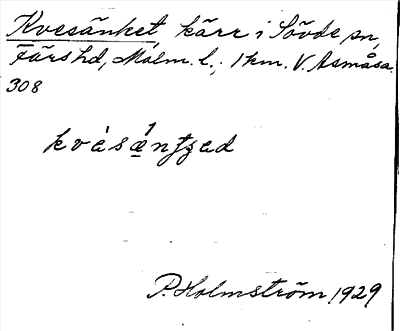 Kvesänket kärr i Sövde sn,
Färs hd, Malm. l., 1 km. V. Asmåsa.
308
P. Holmström 1929